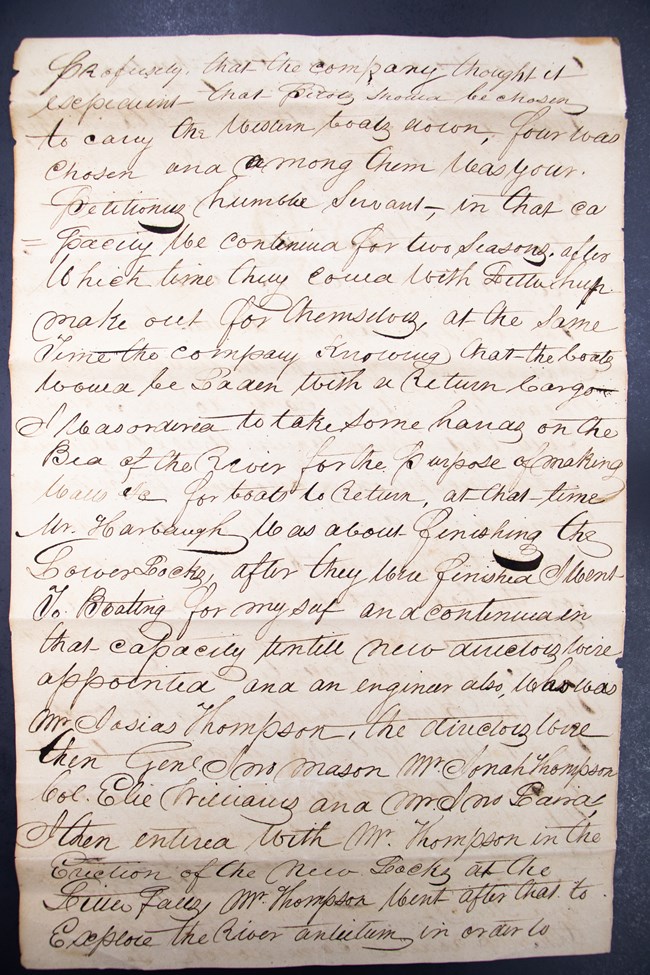 Profusely, that the company thought it
expedient that Pilots should be chosen
to cary the Western boats down, four was
chosen and among them Was your
Petitioners humble Servant, in that ca
= pacity We continued for two Seasons, after
Which time they could With
make out for themselves, at the Same
Time the company Knowing that the boats
Would be Laden With a Return Cargo
I Was ordered to take some hands on the
Bed of the River for the purpose of making
Walls &c for boats to Return, at that time
Mr. Harbaugh Was about finishing the
Lower Locks, after they Were finished I Went
To Boating for my self and continued in
that capacity untill new directors Were
appointed and an engineer also, Who was
Mr Josias Thompson, the directors Were
then Genl Jno Mason Mr. Jonah Thompson
Col. Elie Williams and Mr Jno Laird
I then entired With Mr. Thompson in the
Erection of the New Locks at the
Little Falls, Mr. Thompson Went after that to
Explore the River antietum in order to